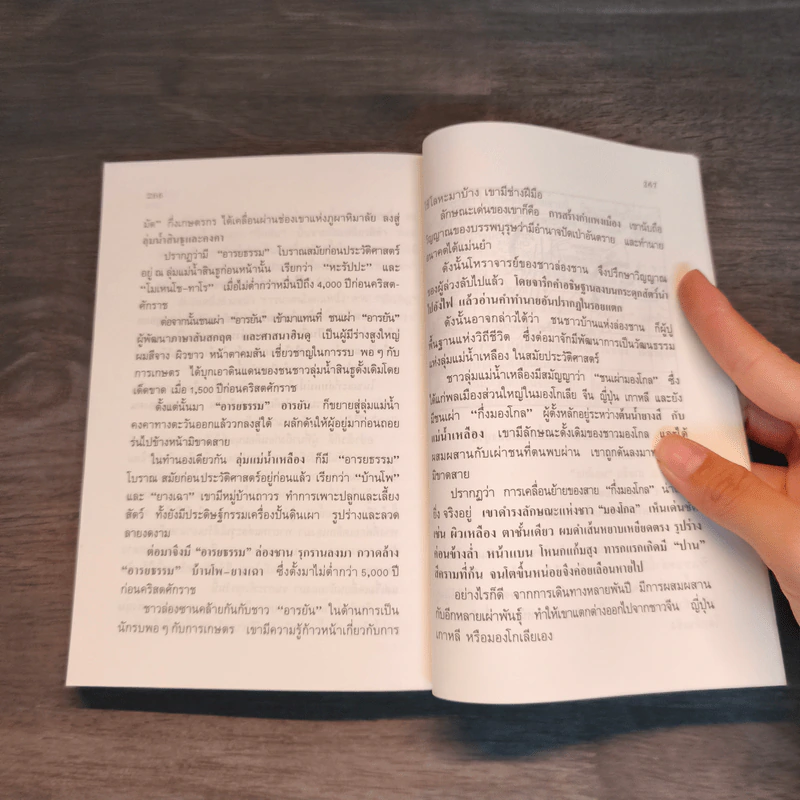 มัด" กึ่งเกษตรกร ได้เคลื่อนผ่านช่องเขาแห่งภูผาหิมาลัย ลงสู่
ลุ่มน้ำสินธูและคงคา
ปรากฏว่ามี "อารยธรรม" โบราณสมัยก่อนประวัติศาสตร์
อยู่ ณ ลุ่มแม่น้ำสินธูก่อนหน้านั้น เรียกว่า "หะรัปปะ" และ
"โมเหนโช-ทาโร" เมื่อไม่ต่ำกว่าหมื่นปีถึง 4,000 ปีก่อนคริสต-
ศักราช
ต่อจากนั้นชนเผ่า "อารยัน" เข้ามาแทนที่ ชนเผ่า "อารยัน"
ผู้พัฒนาภาษาสันสกฤต และศาสนาฮินดู เป็นผู้มีร่างสูงใหญ่
ผมสีจาง ผิวขาว หน้าตาคมสัน เชี่ยวชาญในการรบ พอ ๆ กับ
การเกษตร ได้บุกเอาดินแดนของชนชาวลุ่มน้ำสินธูดั้งเดิมโดย
เด็ดขาด เมื่อ 1,500 ปีก่อนคริสตศักราช
ตั้งแต่นั้นมา "อารยธรรม" อารยัน ก็ขยายสู่ลุ่มแม่น้ำ
คงคาทางตะวันออกแล้ววกลงสู่ใต้ ผลักดันให้ผู้อยู่มาก่อนถอย
ร่นไปข้างหน้ามิขาดสาย
ในทำนองเดียวกัน ลุ่มแม่น้ำเหลือง ก็มี "อารยธรรม"
โบราณ สมัยก่อนประวัติศาสตร์อยู่ก่อนแล้ว เรียกว่า "บ้านโพ"
และ "ยางเฉา" เขามีหมู่บ้านถาวร ทำการเพาะปลูกและเลี้ยง
สัตว์ ทั้งยังมีประดิษฐ์กรรมเครื่องปั้นดินเผา รูปร่างและลวด
ลายงดงาม
ต่อมาจึงมี "อารยธรรม" ล่องชาน รุกรานลงมา กวาดล้าง
"อารยธรรม" บ้านโพ-ยางเฉา ซึ่งตั้งมาไม่ต่ำกว่า 5,000 ปี
ก่อนคริสตศักราช
ชาวล่องชานคล้ายกันกับชาว "อารยัน" ในด้านการเป็น
นักรบพอ ๆ กับการเกษตร เขามีความรู้ก้าวหน้าเกี่ยวกับการ
267
โลหะมาบ้าง เขามีช่างฝีมือ
ลักษณะเด่นของเขาก็คือ การสร้างกำแพงเมือง เขานับถือ
วิญญาณของบรรพบุรุษว่ามีอำนาจปัดเป่าอันตราย และทำนาย
อนาคตได้แม่นยำ
ดังนั้นโหราจารย์ของชาวล่องชาน จึงปรึกษาวิญญาณ
ของผู้ล่วงลับไปแล้ว โดยจารึกคำอธิษฐานลงบนกระดูกสัตว์นำ
ไปอังไฟ แล้วอ่านคำทำนายอันปรากฏในรอยแตก
ดังนั้นอาจกล่าวได้ว่า ชนชาวบ้านแห่งล่องชาน ก็ผู้ปู
พื้นฐานแห่งวิถีชีวิต ซึ่งต่อมาจักมีพัฒนาการเป็นวัฒนธรรม
แห่งลุ่มแม่น้ำเหลือง ในสมัยประวัติศาสตร์
ชาวลุ่มแม่น้ำเหลืองมีสมัญญาว่า "ชนเผ่ามองโกล" ซึ่ง
ได้แก่พลเมืองส่วนใหญ่ในมองโกเลีย จีน ญี่ปุ่น เกาหลี และยัง
มีชนเผ่า "กึ่งมองโกล" ผู้ตั้งหลักอยู่ระหว่างต้นน้ำสางสี กับ
แม่น้ำเหลือง เขามีลักษณะดั้งเดิมของชาวมองโกล และได้
ผสมผสานกับเผ่าชนที่ตนพบผ่าน เขาถูกดันลงมา
มิขาดสาย
ปรากฏว่า การเคลื่อนย้ายของสาย "กึ่งมองโกล"
ยิ่ง จริงอยู่ เขาดำรงลักษณะแห่งชาว "มองโกล" เห็นเด่น
เช่น ผิวเหลือง ตาชั้นเดียว ผมดำเส้นหยาบเหยียดตรง รูปร่าง
ค่อนข้างล่ำ หน้าแบน โหนกแก้มสูง ทารกแรกเกิดมี "ปาน"
สีครามที่ก้น จนโตขึ้นหน่อยจึงค่อยเลือนหายไป
อย่างไรก็ดี จากการเดินทางหลายพันปี มีการผสมผสาน
กับอีกหลายเผ่าพันธุ์ ทำให้เขาแตกต่างออกไปจากชาวจีน ญี่ปุ่น
เกาหลี หรือมองโกเลียเอง